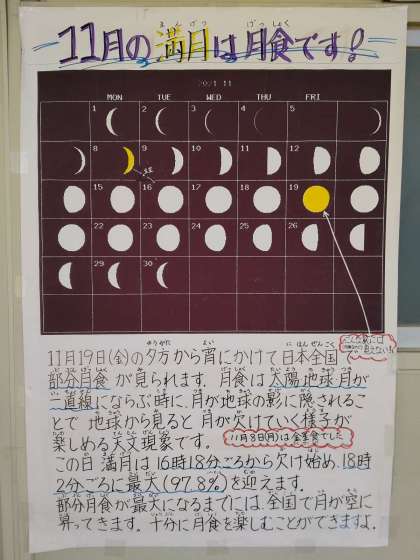 まんげつ げっしょく
11月の満月は月食です!
2021.11
MON TUE WED THU FRI
1 2 3 4 5
8 9 10 11 12
15 16 17 18 19
22 23 24 25 26
29 30
11月19日(金)の夕方から宵にかけて日本全国
部分月食が見られます。月食は太陽地球月が
一直線にならぶ時に、月が地球の影に隠されるこ
とで地球から見ると月が欠けていく様子が
楽しめる天文現象です。
11月8日(月)は金星食でした
この日満月は16時18分ごろから欠け始め、18時
2分ごろに最大(97.8%)を迎えます。
部分月食が最大になるまでには、全国で月が空に
昇ってきます。十分に月食を楽しむことができますよ。